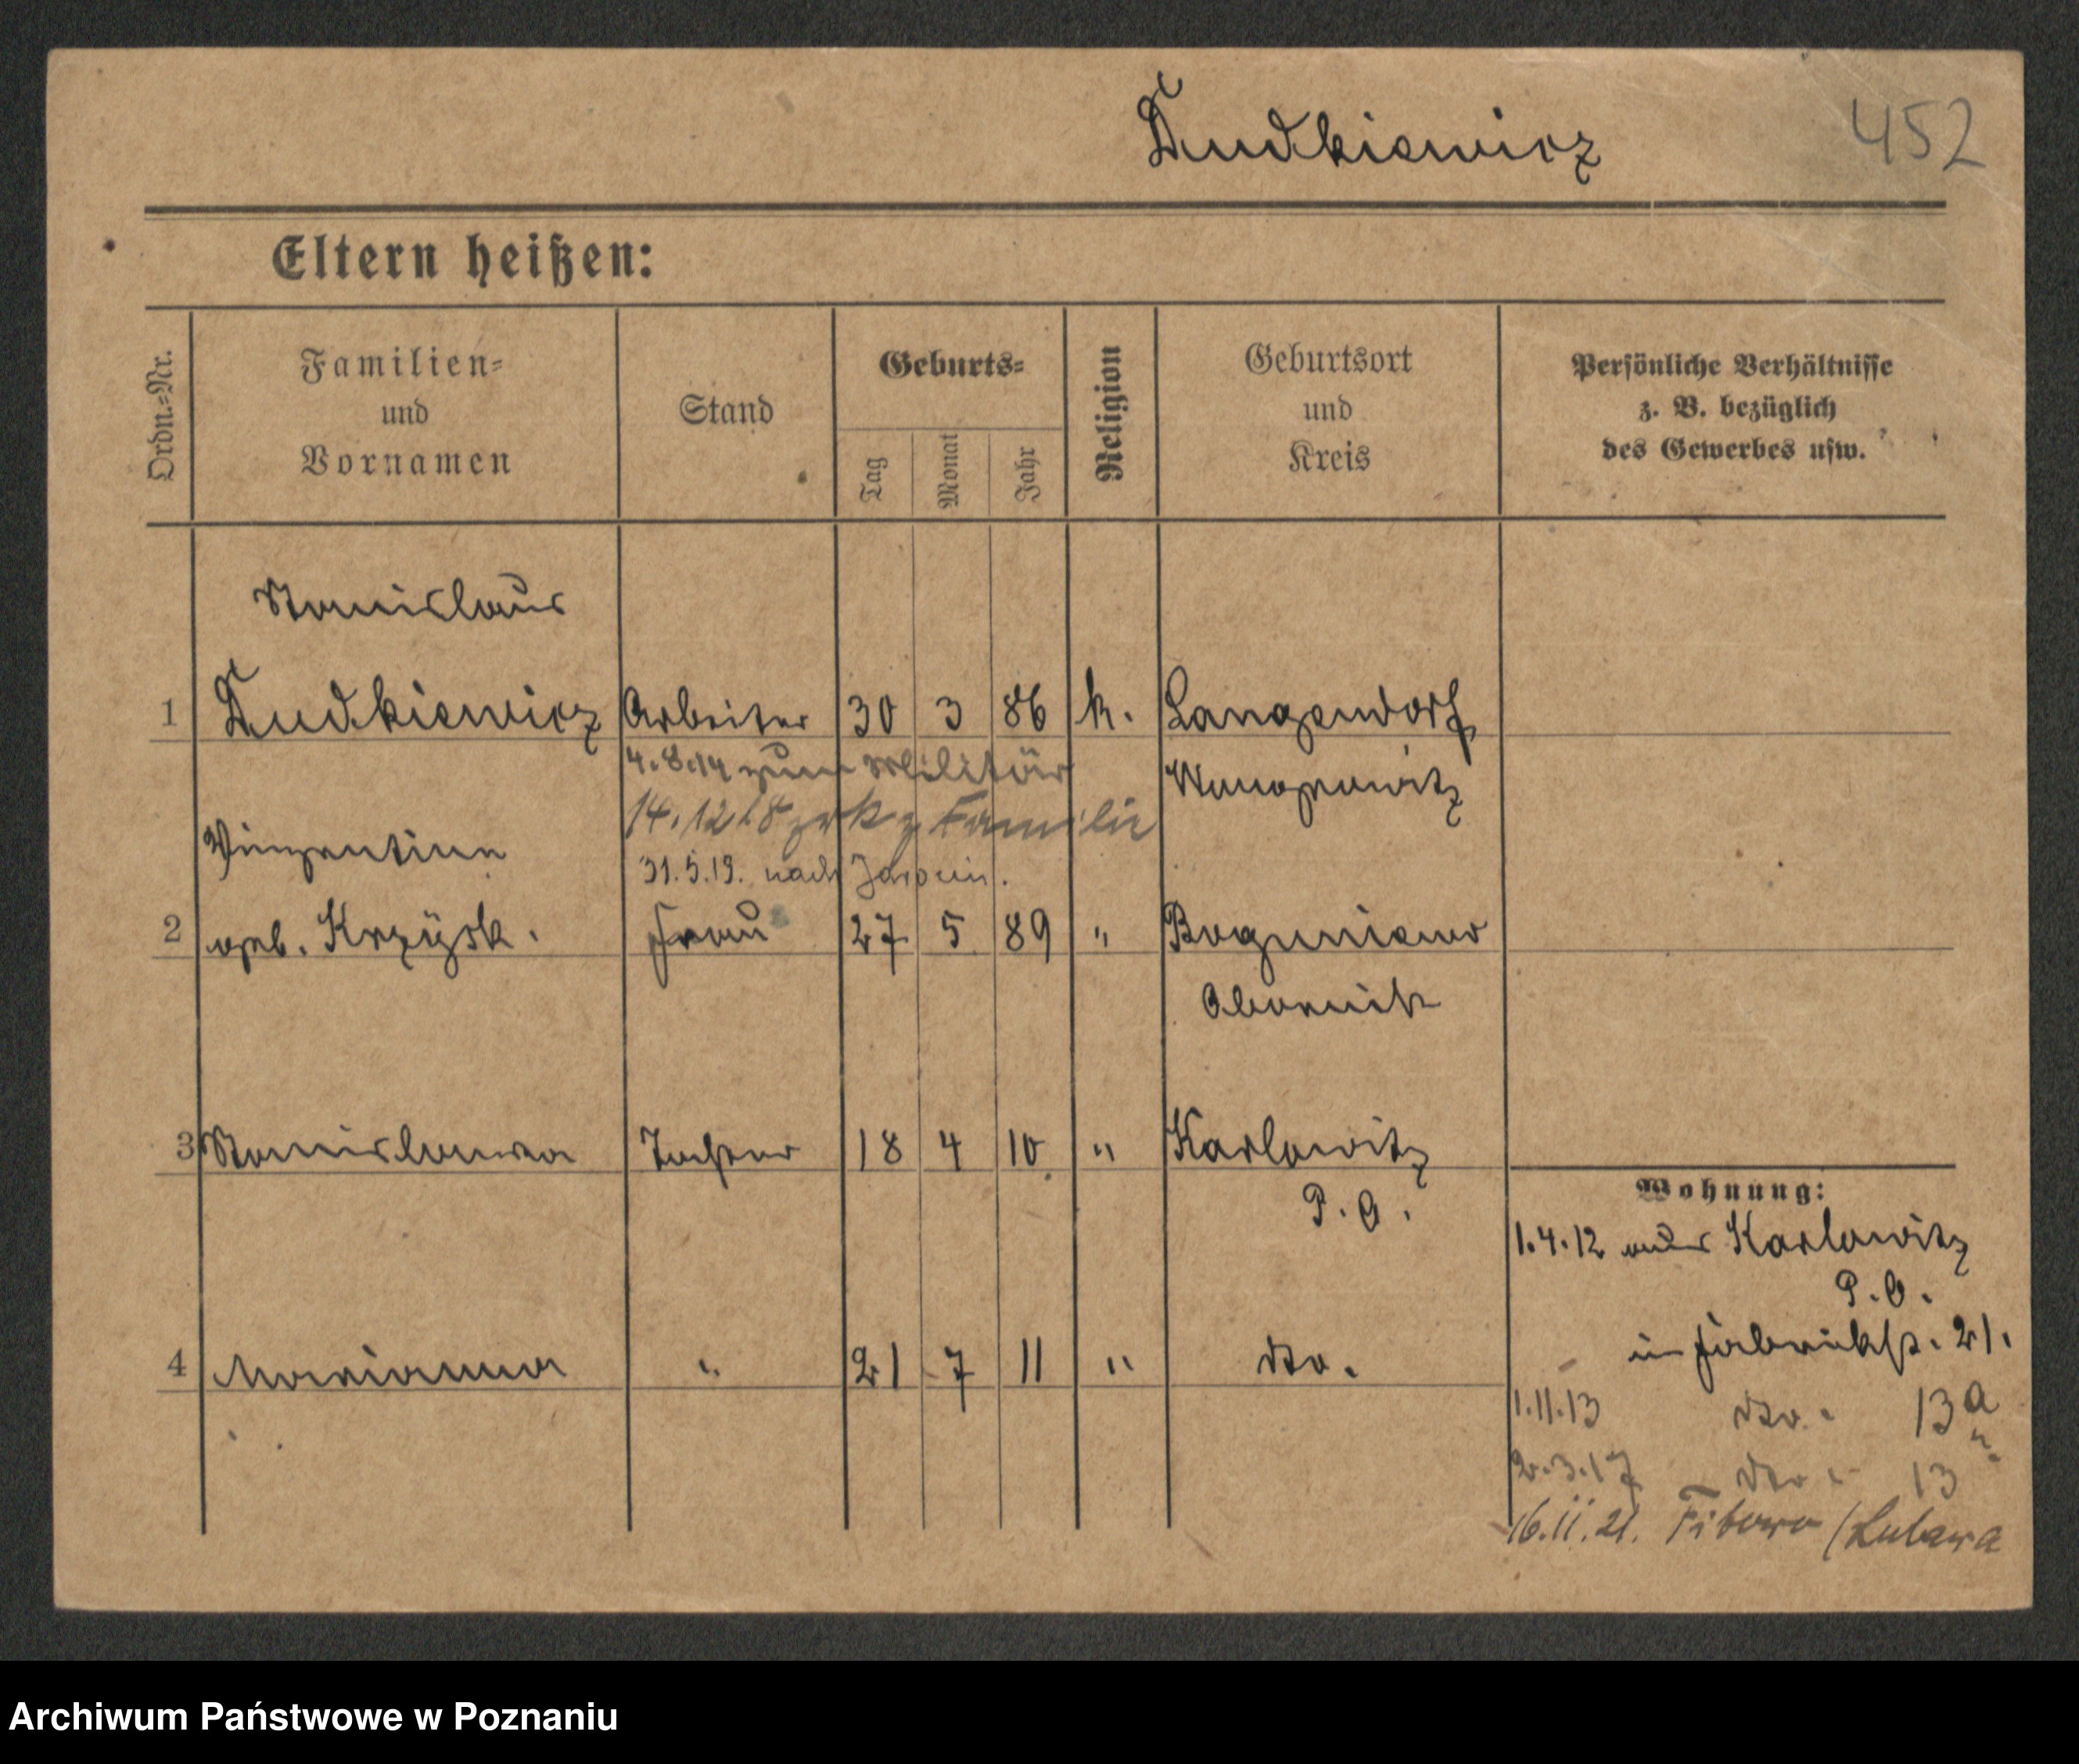 Dudkiewicz 452
Eltern heißen:
Ordn.-Nr.
Familien-
und
Vornamen
Stand
Geburts-
Tag
Monat
Jahr
Religion
Geburtsort
und
Kreis
Persönliche Verhältnisse
z. B. bezüglich
des Gewerbes usw.
Stanislaus
1 Dudkiewicz Arbeiter 30 3 86 k. Langendorf
4.8.14 zum Militär Wongrowitz
14.12 18 zrk z Familie
Vinzentine
31.5.19. nach Jarocin.
2 geb. Krzysk. Frau 27 5 89 " Boguniewo
Obornik
3 Stanislawa Tochter 18 4 10 " Karlowitz
P. O.
4 Marianna " 21 7 11 " dto.
Wohnung:
1.4.12 Karlowitz
P. O.
in Fabrikstr. 21.
1.11.13 dto. 13a
2.3.17 dto 13
16.11.21. Fitowo (Lubawa
Archiwum Państwowe w Poznaniu